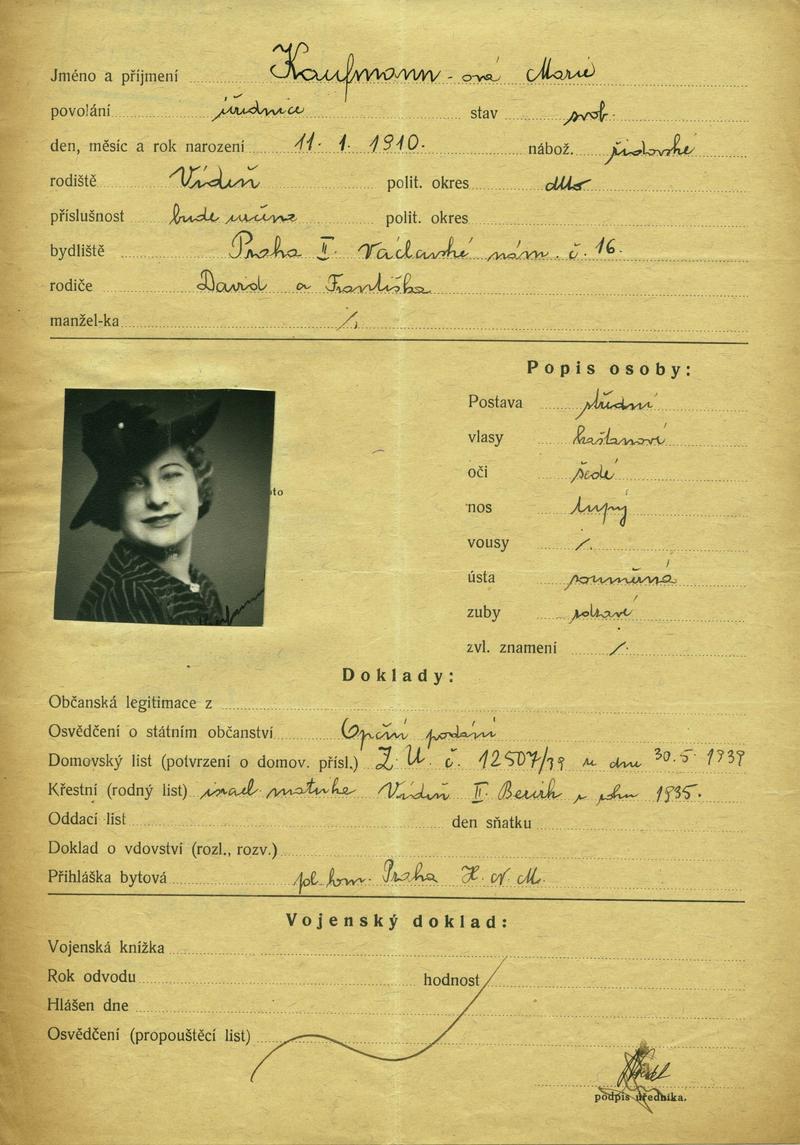 Jméno a příjmení Kaufmann-ová Marie
povolání úřednice stav svob.
den, měsíc a rok narození 11. 1. 1910. nábož. židovské
rodiště Vídeň polit. okres dtto
příslušnost bude určena polit. okres
bydliště Praha II. Václavské nám. č. 16.
rodiče David a Františka
manžel-ka /.
Popis osoby:
Postava střední
vlasy kaštanové
oči šedé
nos tupý
vousy /.
ústa souměrná
zuby zdravé
zvl. znamení /.
oto
Doklady:
Občanská legitimace z
Osvědčení o státním občanství Opční podání
Domovský list (potvrzení o domov. přísl.) Z. Ú. č. 12507/39 ze dne 30. 5. 1939
Křestní (rodný list) israel. matrike Vídeň II. Bezirk z roku 1935.
Oddací list den sňatku
Doklad o vdovství (rozl., rozv.)
Přihláška bytová pol. kom. Praha H. N. M.
Vojenský doklad:
Vojenská knížka
Rok odvodu hodnost
Hlášen dne
Osvědčení (propouštěcí list)
podpis úředníka.